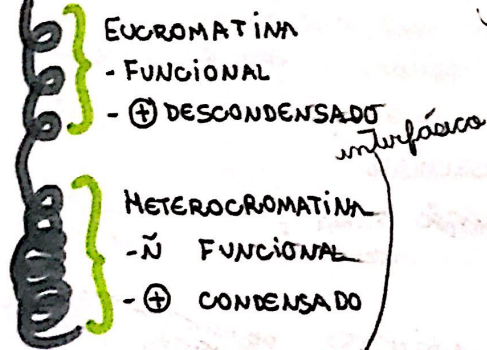 EUCROMATINA
- FUNCIONAL
- ⊕ DESCONDENSADO
interfásico
HETEROCROMATINA
- Ñ FUNCIONAL
- ⊕ CONDENSADO